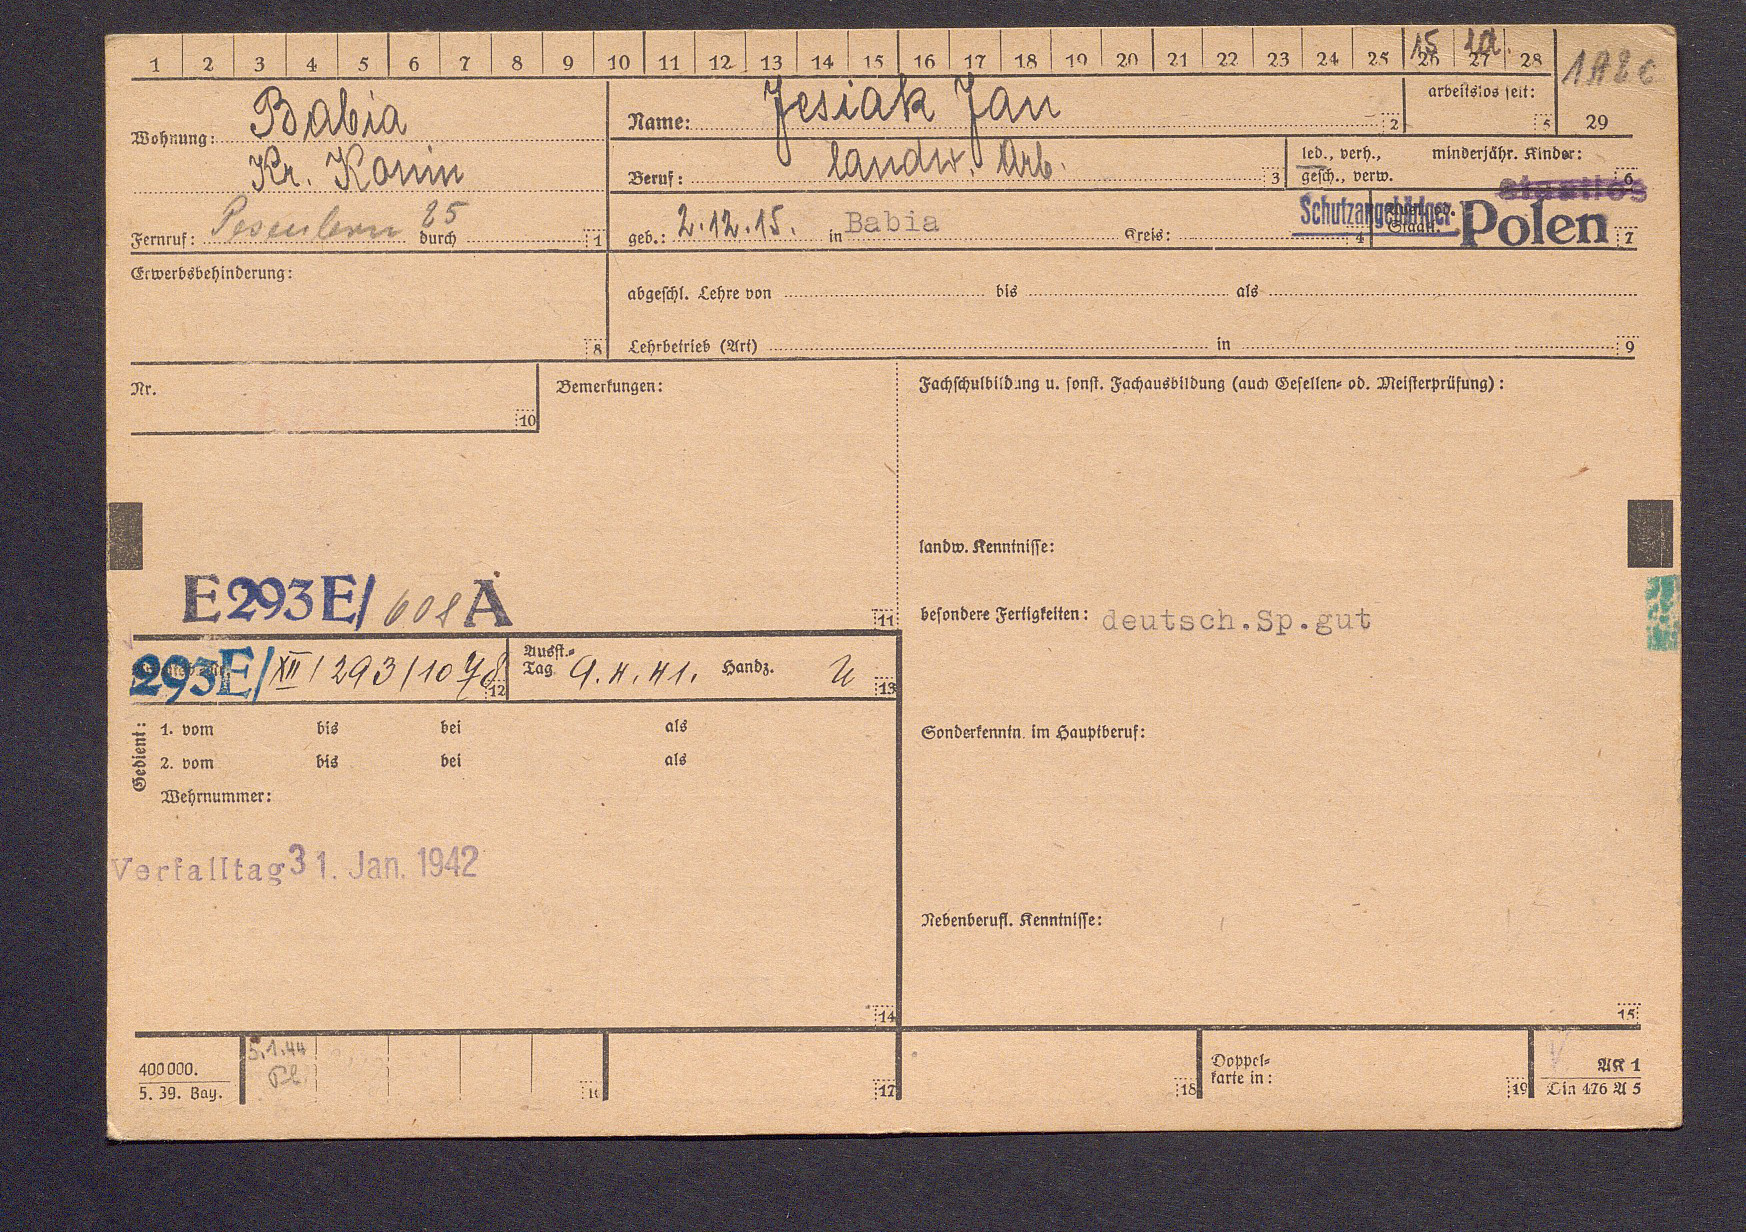 1 2 3 4 5 6 7 8 9 10 11 12 13 14 15 16 17 18 19 20 21 22 23 24 25 26 27 28
15 1a.
1A2c
29
Wohnung: Babia
Kr. Konin
Fernruf: durch 25 1
Name: Jesiak Jan 2
arbeitslos seit: 5
Beruf: landw. Arb. 3
led., verh.,
gesch., verw.
minderjähr. Kinder: 6
staatlos
geb.: 2.12.15. in Babia Kreis: 4
Schutzangehöriger Polen 7
Erwerbsbehinderung:
8
abgeschl. Lehre von bis als
Lehrbetrieb (Art) in 9
Nr.
10
Bemerkungen:
E293E/ 608 A
11
293E/ XII/293/1078 12
Ausst.-
Tag 9.4.41. Handz. 13
Gedient:
1. vom bis bei als
2. vom bis bei als
Wehrnummer:
Verfalltag 31. Jan. 1942
14
Fachschulbildung u. sonst. Fachausbildung (auch Gesellen- od. Meisterprüfung):
landw. Kenntnisse:
besondere Fertigkeiten: deutsch.Sp.gut
Sonderkenntn. im Hauptberuf:
Nebenberufl. Kenntnisse:
15
400000.
5. 39. Bay.
5.1.44
16
17
18
Doppel-
karte in:
19
AK 1
Din 476 A 5